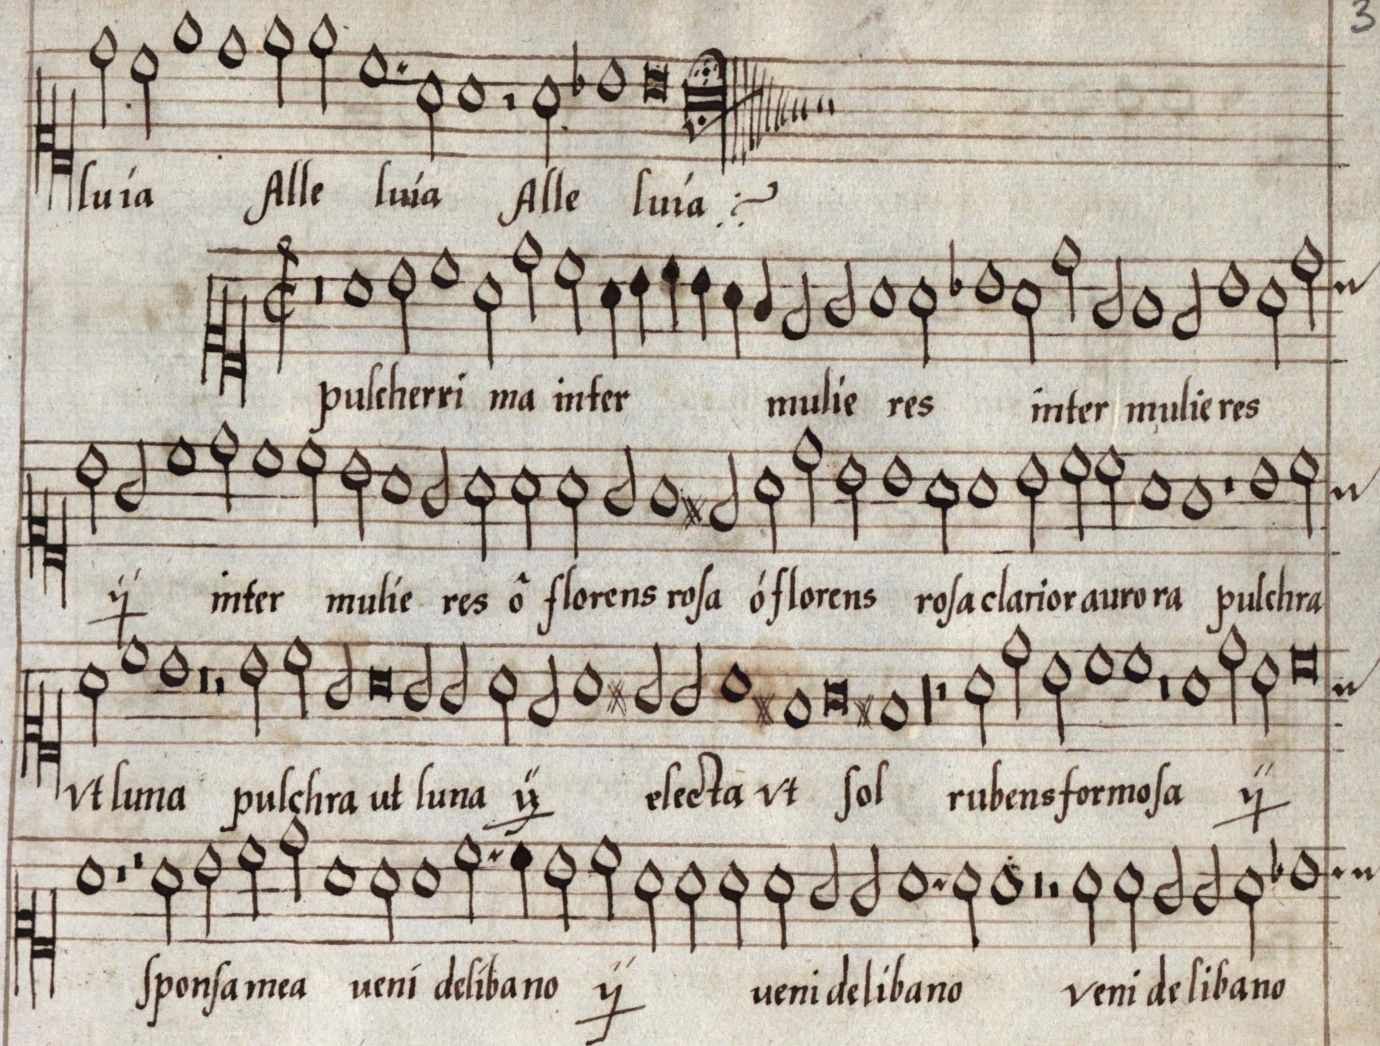 3
luia Alle luia Alle luia
pulcherri ma inter mulie res inter mulieres
ij inter mulie res ô florens rosa ó florens rosa clarior aurora pulchra
vt luna pulchra ut luna ij electa vt sol rubens formosa ij
sponsa mea ueni delibano ij ueni de libano veni de libano